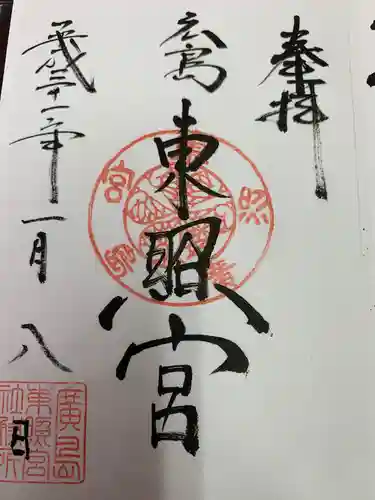 奉拝
広島
東照宮
平成三十一年一月八日
廣島
東照宮
社務所